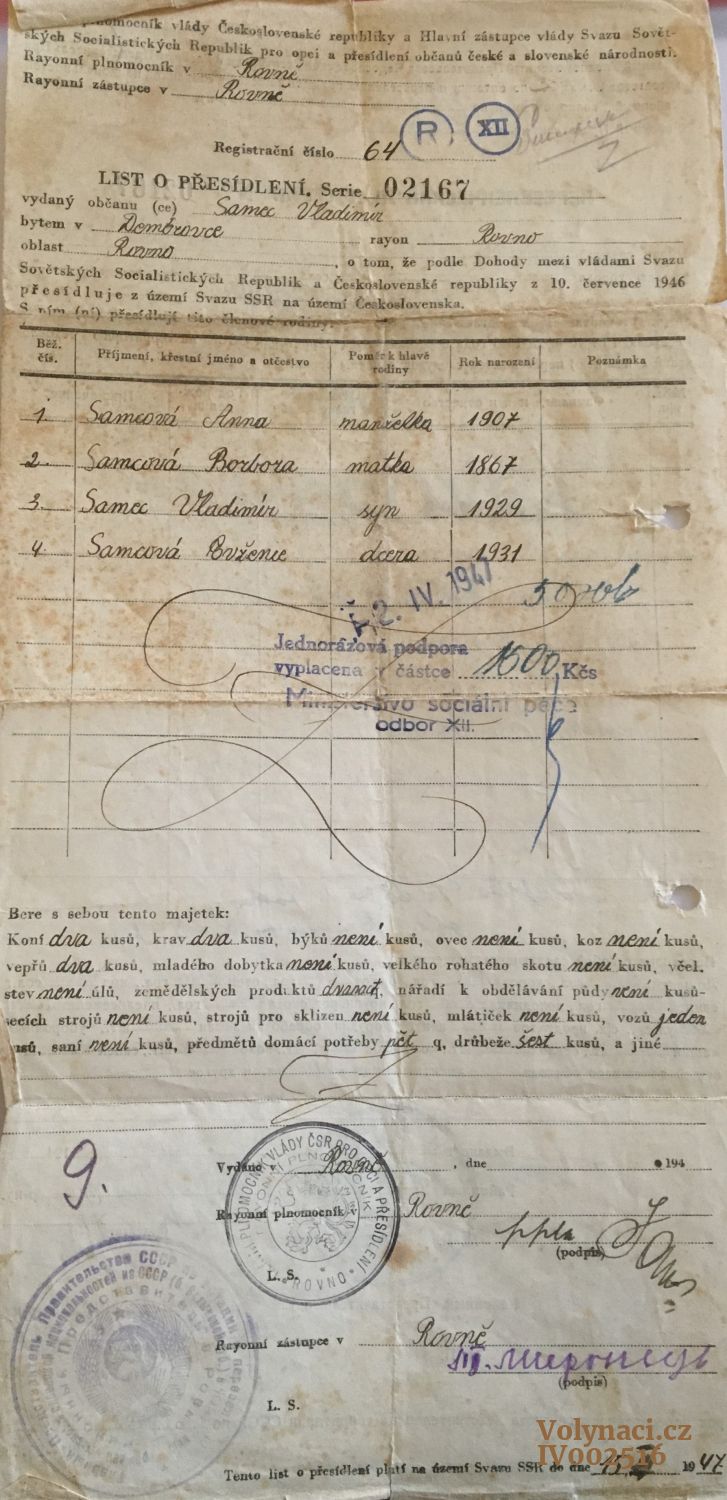 plnomocník vlády Československé republiky a Hlavní zástupce vlády Svazu Sovět-
ských Socialistických Republik pro opci a přesídlení občanů české a slovenské národnosti.
Rayonní plnomocník v Rovně
Rayonní zástupce v Rovně
R. XII
Registrační číslo 64
LIST O PŘESÍDLENÍ. Serie 02167
vydaný občanu (ce) Samec Vladimír
bytem v Domórovce rayon Rovno
oblast Rovno, o tom, že podle Dohody mezi vládami Svazu
Sovětských Socialistických Republik a Československé republiky z 10. července 1946
přesídluje z území Svazu SSR na území Československa.
S ním (ní) přesídlují tito členové rodiny:
Běž. čís. Příjmení, křestní jméno a otčestvo Poměr k hlavě rodiny Rok narození Poznámka
1. Samcová Anna manželka 1907
2. Samcová Borbora matka 1867
3. Samec Vladimír syn 1929
4. Samcová Evženie dcera 1931
2. IV. 1947
50 rub
Jednorázová podpora
vyplacena v částce 1600 Kčs
Ministerstvo sociální péče
odbor XII.
Bere s sebou tento majetek:
Koní dva kusů, krav dva kusů, býků není kusů, ovec není kusů, koz není kusů,
vepřů dva kusů, mladého dobytka není kusů, velkého rohatého skotu není kusů, včel.
stev není úlů, zemědělských produktů dvanact, nářadí k obdělávání půdy není kusů
secích strojů není kusů, strojů pro sklizen není kusů, mlátiček není kusů, vozů jeden
kusů, saní není kusů, předmětů domácí potřeby pět q, drůbeže šest kusů, a jiné
9.
Vydáno v Rovně, dne 194
Rayonní plnomocník v Rovně
ppla
(podpis)
PLNOMOCNÍK VLÁDY ČSR PRO OPCI A PŘESÍDLENÍ
ROVNO
L. S.
Rayonní zástupce v Rovně
(podpis)
L. S.
Правительства СССР
Volynaci.cz
IV002516
Tento list o přesídlení platí na území Svazu SSR do dne 15. 1947